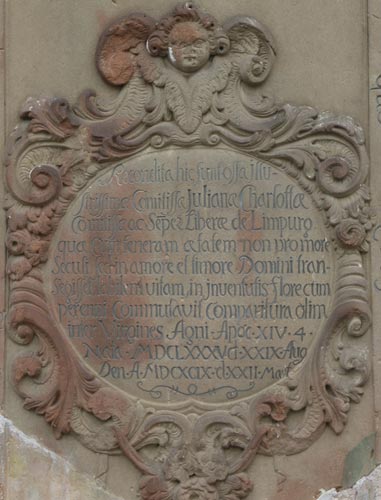 Recondita hic sunt ossa illu-
strissimæ Comitissæ Julianæ Charlottæ
Comitissæ ac Semper Liberæ de Limpurg
quæ teneram ætatem non pro more
Seculi sed in amore et timore Domini tran-
vitam, in juventutis flore cum
perenni Commutavit Comparitura olim
inter Virgines Agni Apoc. XIV. 4.
Nata MDCLXXXV d. XXIX Aug
Den. A. MDCXCIX. d. XXII. May